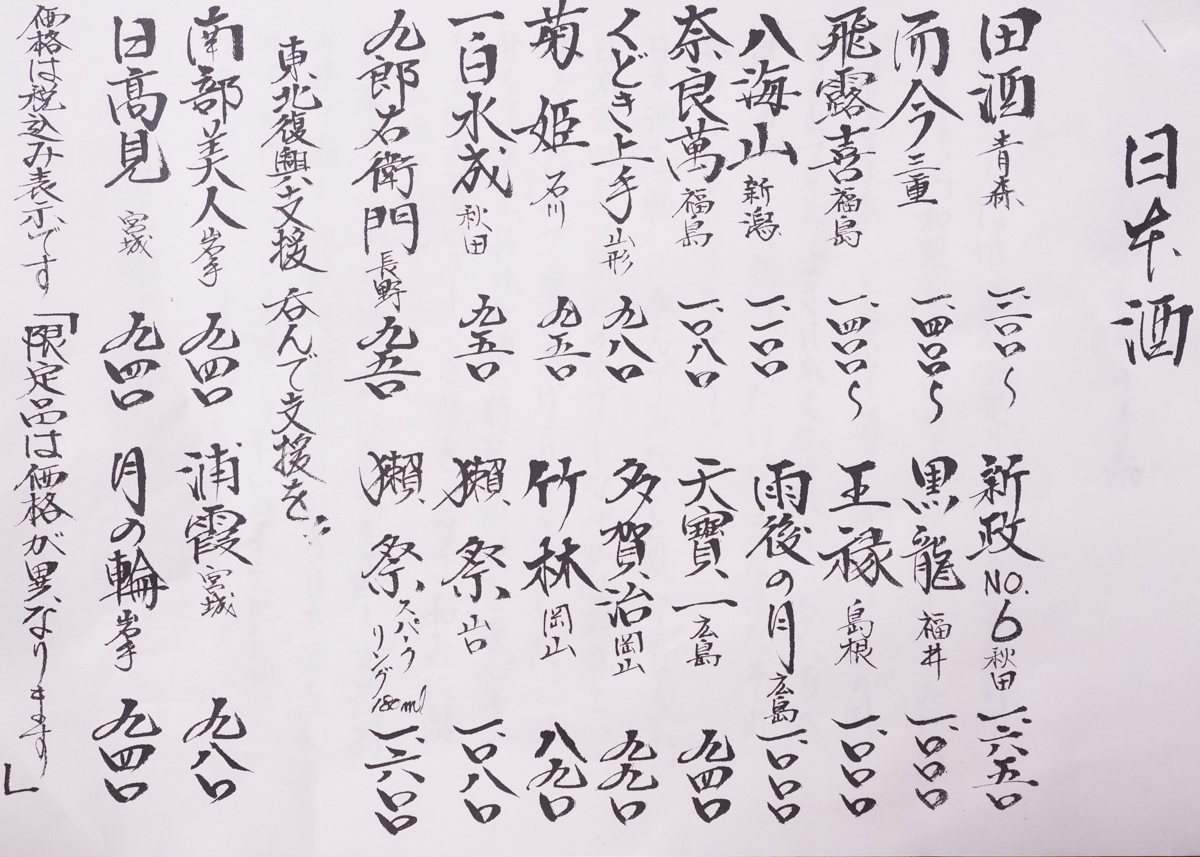 日本酒
田酒 青森 一、二〇〇〜 新政 NO.6 秋田 一、六五〇
而今 三重 一、四〇〇〜 黒龍 福井 一、〇〇〇
飛露喜 福島 一、四〇〇〜 王禄 島根 一、〇〇〇
八海山 新潟 一、一〇〇 雨後の月 広島 一、〇〇〇
奈良萬 福島 一、〇八〇 天寶一 広島 九四〇
くどき上手 山形 九八〇 多賀治 岡山 九九〇
菊姫 石川 九五〇 竹林 岡山 八九〇
一白水成 秋田 九五〇 獺祭 山口 一、〇八〇
九郎右衛門 長野 九五〇 獺祭 スパークリング 180ml 一、六〇〇
東北復興支援 呑んで支援を…
南部美人 岩手 九四〇 浦霞 宮城 九八〇
日高見 宮城 九四〇 月の輪 岩手 九四〇
価格は税込み表示です「限定品は価格が異なります」